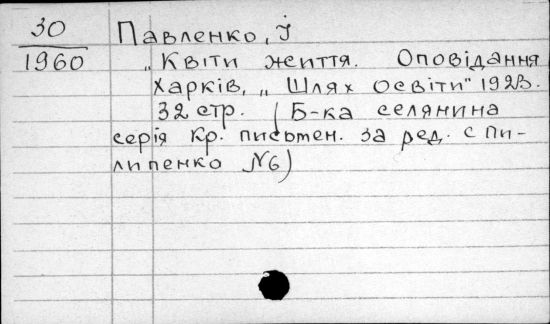 30
1960
Павленко, І
„Квіти життя. Оповідання
Харків, „Шлях освіти" 1923.
32 стр. (Б-ка селянина
серія Кр. письмен. за ред. С Пи-
липенко №6)